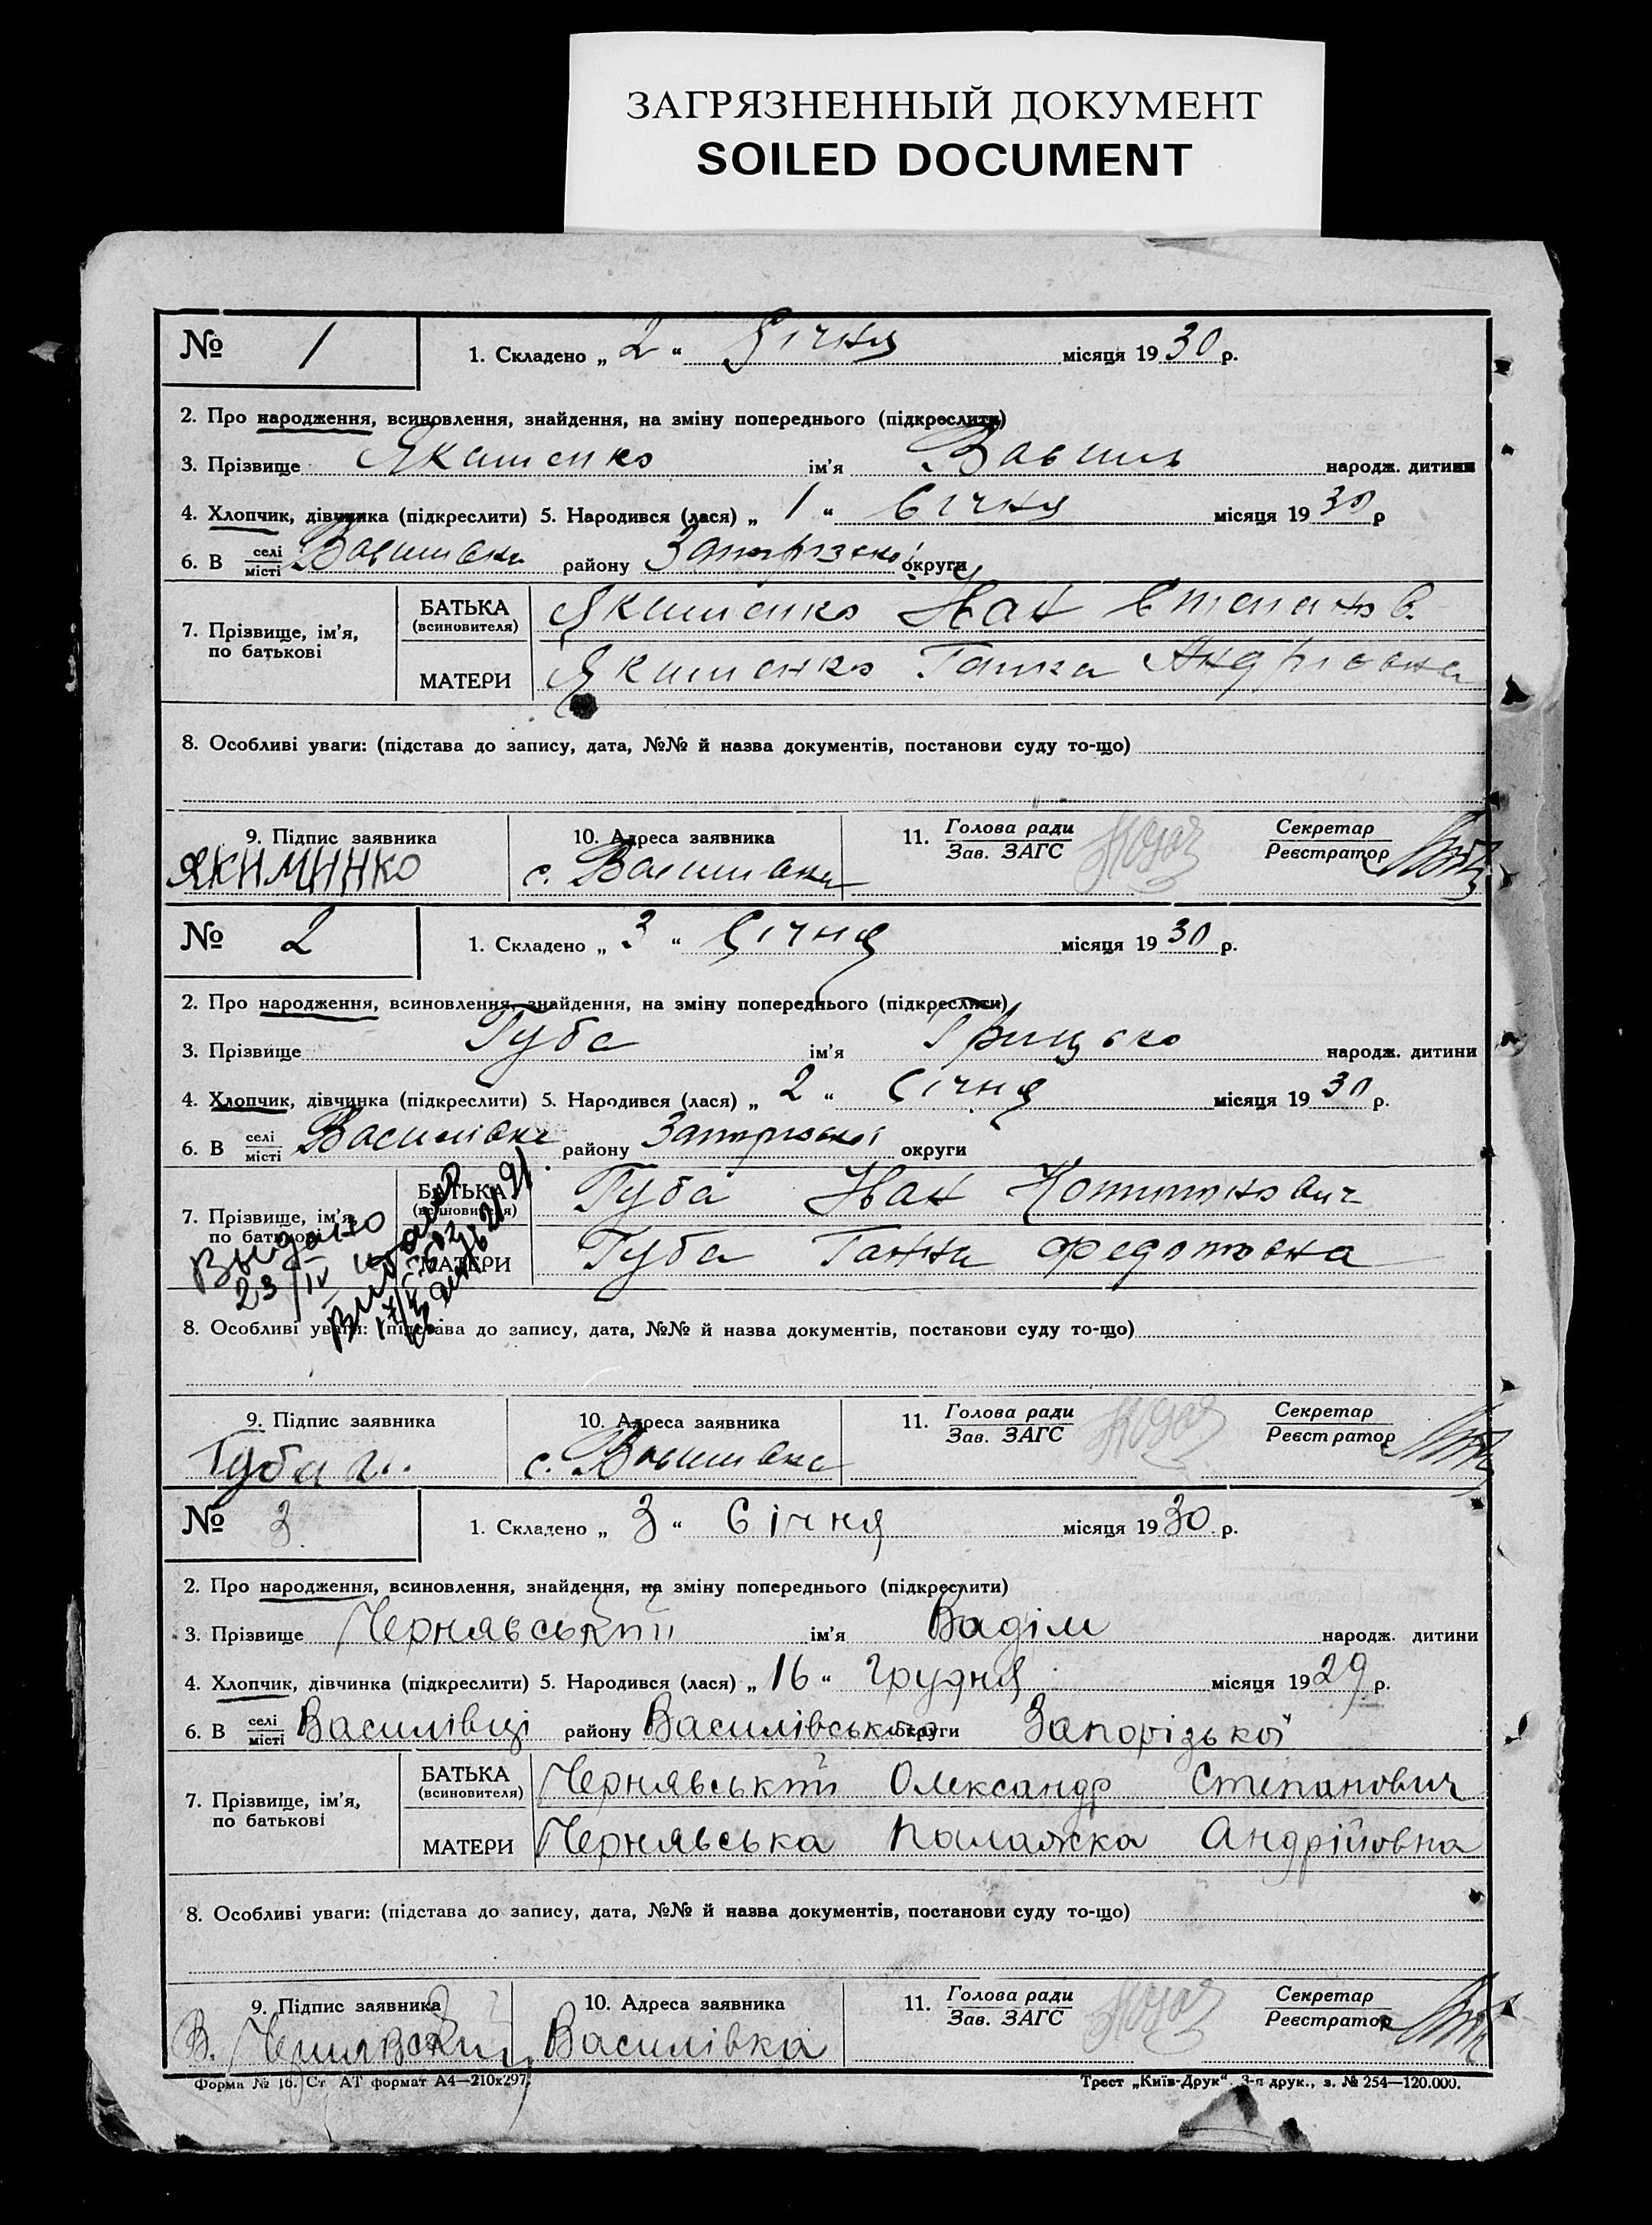 ЗАГРЯЗНЕННЫЙ ДОКУМЕНТ
SOILED DOCUMENT
№ 1 1. Складено „ 2 “ Січня місяця 1930 р.
2. Про народження, всиновлення, знайдення, на зміну попереднього (підкреслити)
3. Прізвище Якименко ім'я Василь народж. дитини
4. Хлопчик, дівчинка (підкреслити) 5. Народився (лася) „ 1 “ Січня місяця 1930 р
6. В селі місті Василівка району Запорізької округи
7. Прізвище, ім'я, по батькові
БАТЬКА (всиновителя) Якименко Іван Степанов.
МАТЕРИ Якименко Ганна Андріовна
8. Особливі уваги: (підстава до запису, дата, №№ й назва документів, постанови суду то-що)
9. Підпис заявника 10. Адреса заявника 11. Голова ради Зав. ЗАГС Секретар Реєстратор
ЯКИМИНКО с. Василівка
№ 2 1. Складено „ 3 “ Січня місяця 1930 р.
2. Про народження, всиновлення, знайдення, на зміну попереднього (підкреслити)
3. Прізвище Губа ім'я Грицько народж. дитини
4. Хлопчик, дівчинка (підкреслити) 5. Народився (лася) „ 2 “ Січня місяця 1930 р.
6. В селі місті Василівка району Запорізької округи
7. Прізвище, ім'я, по батькові
БАТЬКА (всиновителя) Губа Іван
МАТЕРИ Губа Ганна Федотовна
Выдано
23/IV
8. Особливі уваги: (підстава до запису, дата, №№ й назва документів, постанови суду то-що)
9. Підпис заявника 10. Адреса заявника 11. Голова ради Зав. ЗАГС Секретар Реєстратор
Губа с. Василівка
№ 3 1. Складено „ 3 “ Січня місяця 1930 р.
2. Про народження, всиновлення, знайдення, на зміну попереднього (підкреслити)
3. Прізвище Чернявський ім'я Вадім народж. дитини
4. Хлопчик, дівчинка (підкреслити) 5. Народився (лася) „ 16 “ Грудня місяця 1929 р.
6. В селі місті Василівці району Василівського округи Запорізької
7. Прізвище, ім'я, по батькові
БАТЬКА (всиновителя) Чернявський Олександр Степанович
МАТЕРИ Чернявська Палажка Андрійовна
8. Особливі уваги: (підстава до запису, дата, №№ й назва документів, постанови суду то-що)
9. Підпис заявника 10. Адреса заявника 11. Голова ради Зав. ЗАГС Секретар Реєстратор
В. Василівка
Форма № 16. Ст АТ формат А4—210х297. Трест „Київ-Друк“. 3-я друк., з. № 254—120.000.